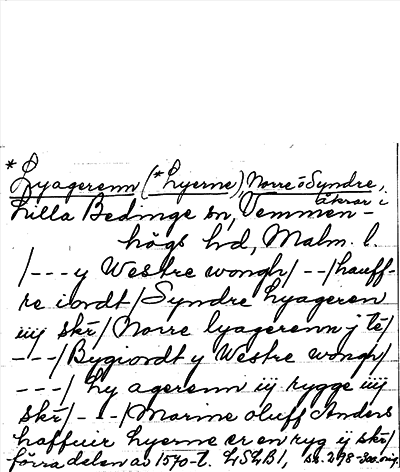 *Lyagerenn (*Lyerne), Norre o Syndre,
åkrar i
Lilla Beddinge sn, Vemmen-
högs hd, Malm. l.
/--- y Westre wongh/ --/hauff-
re iordt/ Syndre Lyageren
iiij skr/ Norre lyagerenn j te/
---/ Bygiordt y Westre wongh/
---/ Ly agerenn iij rygge iiij
skr/ - - -/ Marine oluff Anders
haffuer Lyerne er en ryg ij skr/
förra delen av 1570-t. LSLB1, s. 298-300, orig.